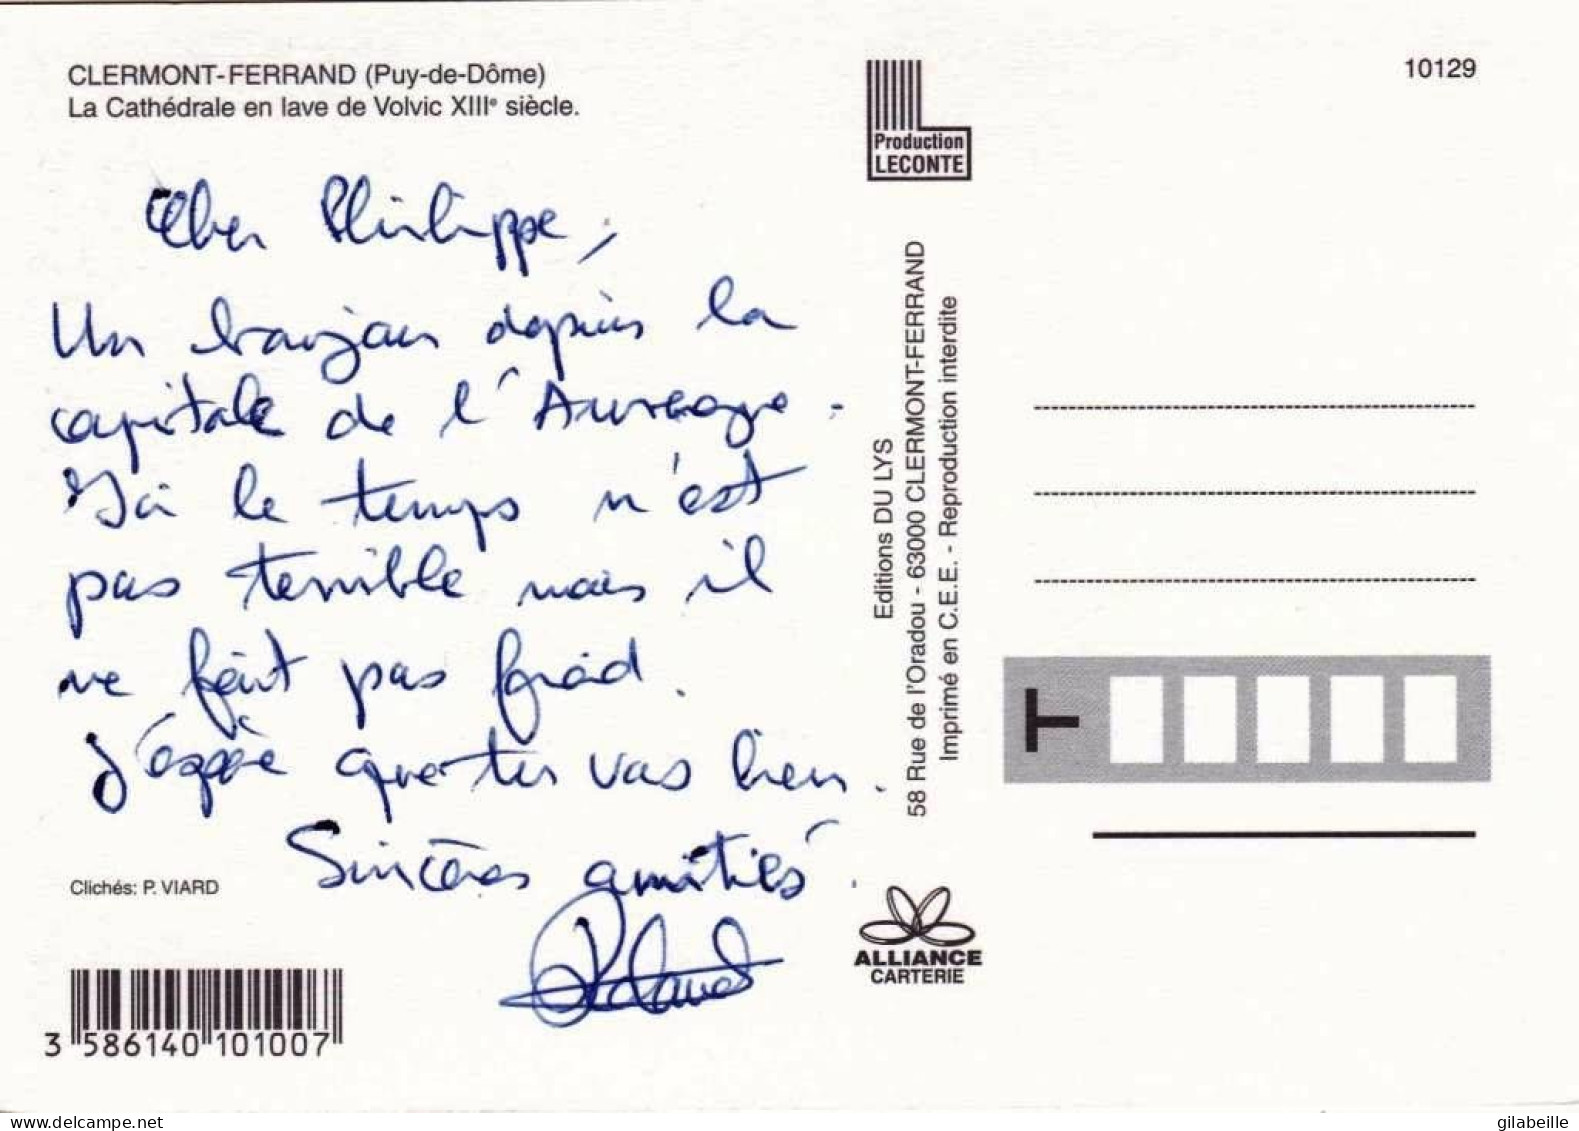 CLERMONT-FERRAND (Puy-de-Dôme)
La Cathédrale en lave de Volvic XIIIe siècle.
Cher Philippe,
Un bonjour depuis la
capitale de l'Auvergne.
Ici le temps n'est
pas terrible mais il
ne fait pas froid.
J'espère que tu vas bien.
Sincères amitiés.
Roland
Clichés: P. VIARD
3 586140 101007
Production
LECONTE
Editions DU LYS
58 Rue de l'Oradou - 63000 CLERMONT-FERRAND
Imprimé en C.E.E. - Reproduction interdite
ALLIANCE
CARTERIE
10129
T
www.delcampe.net
gilabeille